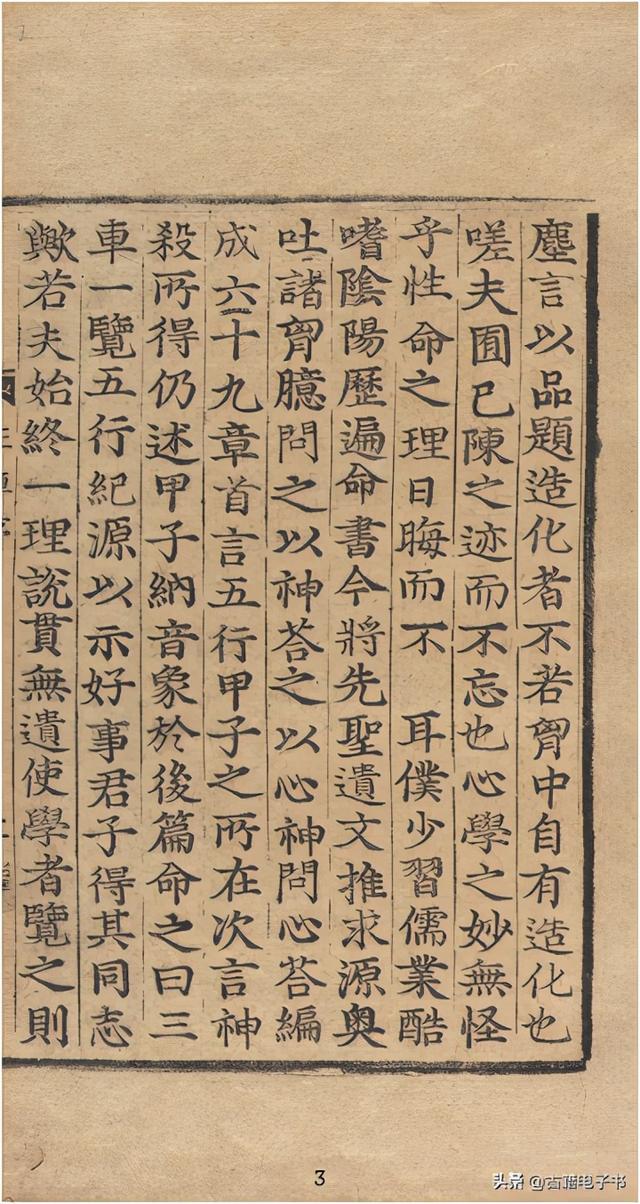 塵言以品題造化者不若胷中自有造化也
嗟夫囿已陳之迹而不忘也心學之妙無怪
乎性命之理日晦而不 耳僕少習儒業酷
嗜隂陽歷遍命書今將先聖遺文推求源奥
吐諸胷臆問之以神荅之以心神問心荅編
成六十九章首言五行甲子之所在次言神
殺所得仍述甲子納音象於後篇命之曰三
車一覽五行紀源以示好事君子得其同志
歟若夫始終一理說貫無遺使學者覽之則
3
头条 @古籍电子书